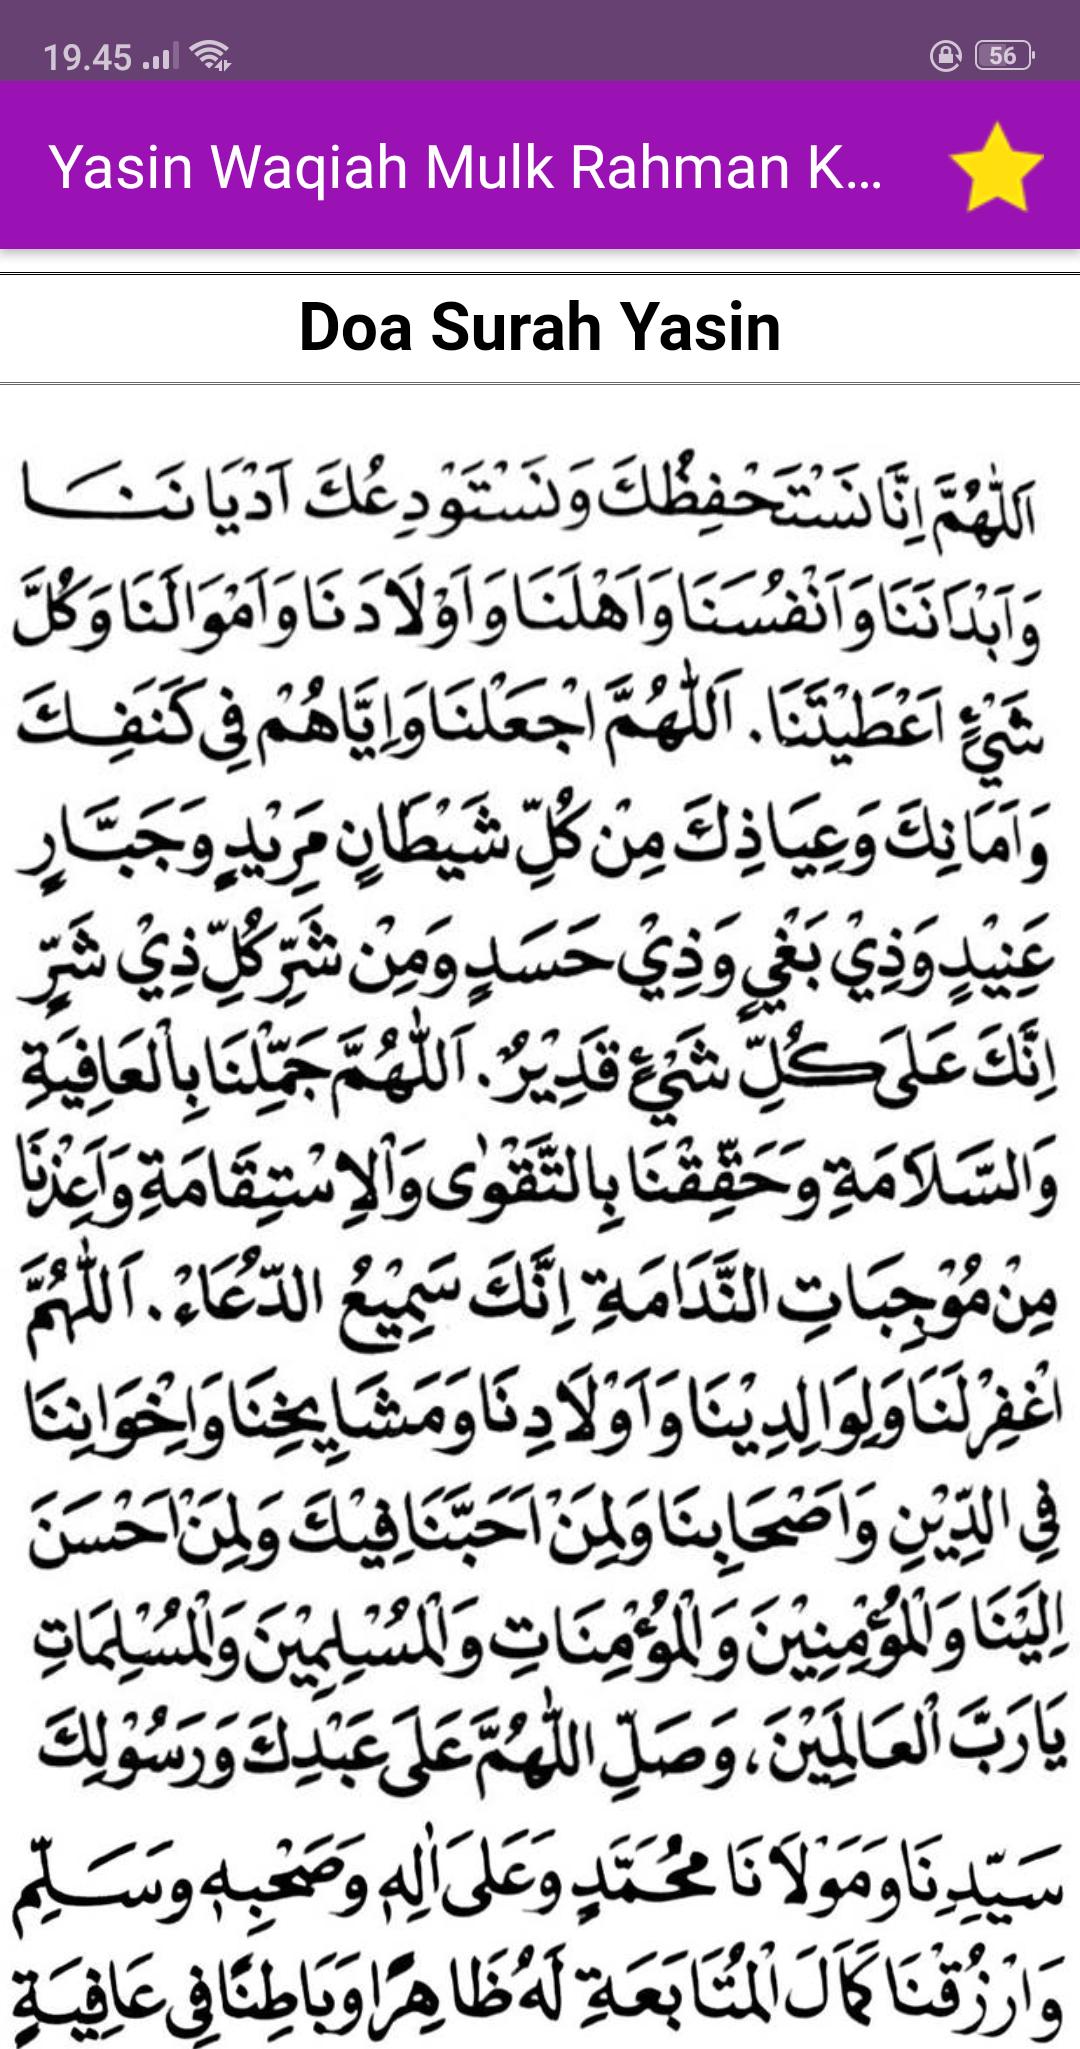 19.45
56
Yasin Waqiah Mulk Rahman K...
Doa Surah Yasin
اَللّٰهُمَّ اِنَّا نَسْتَحْفِظُكَ وَنَسْتَوْدِعُكَ اَدْيَانَنَا
وَاَبْدَانَنَا وَاَنْفُسَنَا وَاَهْلَنَا وَاَوْلَادَنَا وَاَمْوَالَنَا وَكُلَّ
شَيْءٍ اَعْطَيْتَنَا. اَللّٰهُمَّ اجْعَلْنَا وَاِيَّاهُمْ فِي كَنَفِكَ
وَاَمَانِكَ وَعِيَاذِكَ مِنْ كُلِّ شَيْطَانٍ مَرِيْدٍ وَجَبَّارٍ
عَنِيْدٍ وَذِيْ بَغْيٍ وَذِيْ حَسَدٍ وَمِنْ شَرِّ كُلِّ ذِيْ شَرٍّ
اِنَّكَ عَلَى كُلِّ شَيْءٍ قَدِيْرٌ. اَللّٰهُمَّ جَمِّلْنَا بِالْعَافِيَةِ
وَالسَّلَامَةِ وَحَقِّقْنَا بِالتَّقْوٰى وَالْاِسْتِقَامَةِ وَاَعِذْنَا
مِنْ مُوْجِبَاتِ النَّدَامَةِ اِنَّكَ سَمِيْعُ الدُّعَاءْ. اَللّٰهُمَّ
اغْفِرْ لَنَا وَلِوَالِدِيْنَا وَاَوْلَادِنَا وَمَشَايِخِنَا وَاِخْوَانِنَا
فِي الدِّيْنِ وَاَصْحَابِنَا وَلِمَنْ اَحَبَّنَا فِيْكَ وَلِمَنْ اَحْسَنَ
اِلَيْنَا وَالْمُؤْمِنِيْنَ وَالْمُؤْمِنَاتِ وَالْمُسْلِمِيْنَ وَالْمُسْلِمَاتِ
يَارَبَّ الْعَالَمِيْنَ، وَصَلِّ اللّٰهُمَّ عَلَى عَبْدِكَ وَرَسُوْلِكَ
سَيِّدِنَا وَمَوْلَانَا مُحَمَّدٍ وَعَلَى اٰلِهٖ وَصَحْبِهٖ وَسَلِّمْ
وَارْزُقْنَا كَمَالَ الْمُتَابَعَةِ لَهُ ظَاهِرًا وَبَاطِنًا فِي عَافِيَةٍ